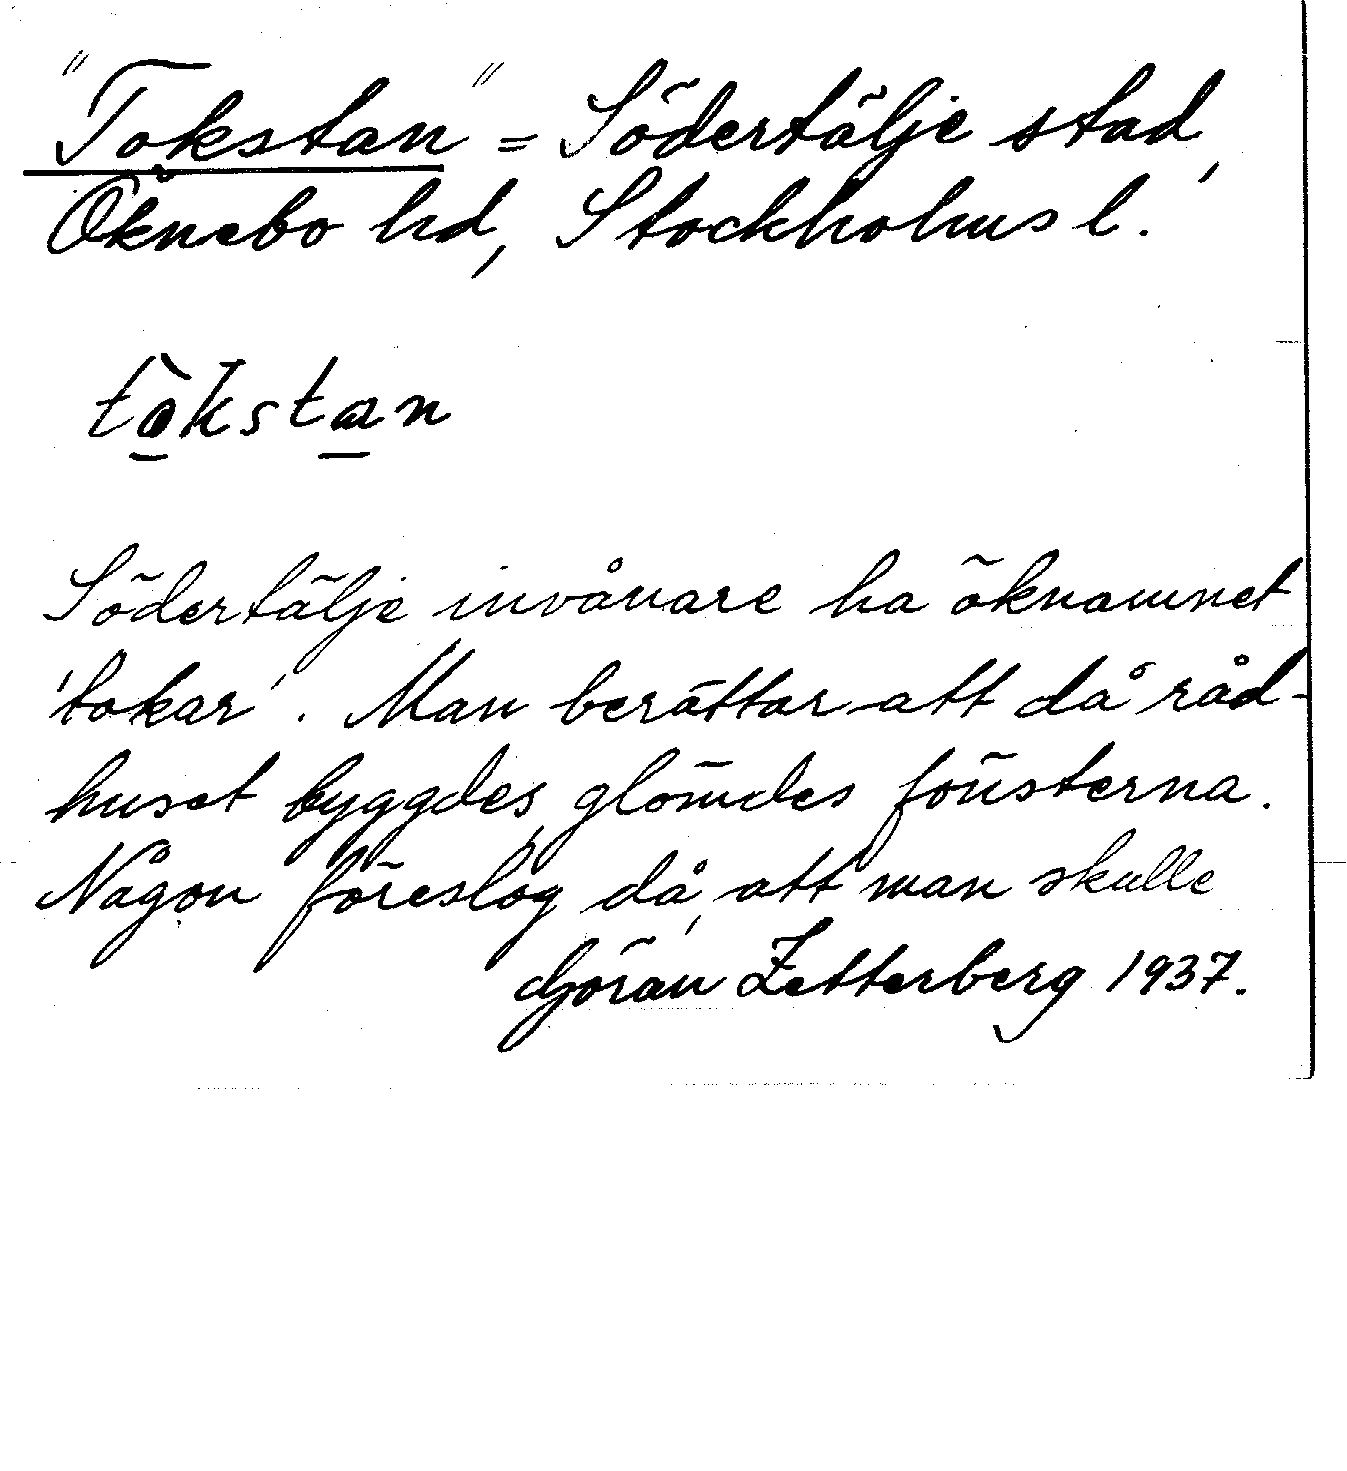 "Tokstan" = Södertälje stad,
Öknebo hd, Stockholms l.
tòkstan
Södertälje invånare ha öknamnet
'tokar'. Man berättar att då råd-
huset byggdes, glömdes fönsterna.
Någon föreslog då, att man skulle
Göran Zetterberg 1937.